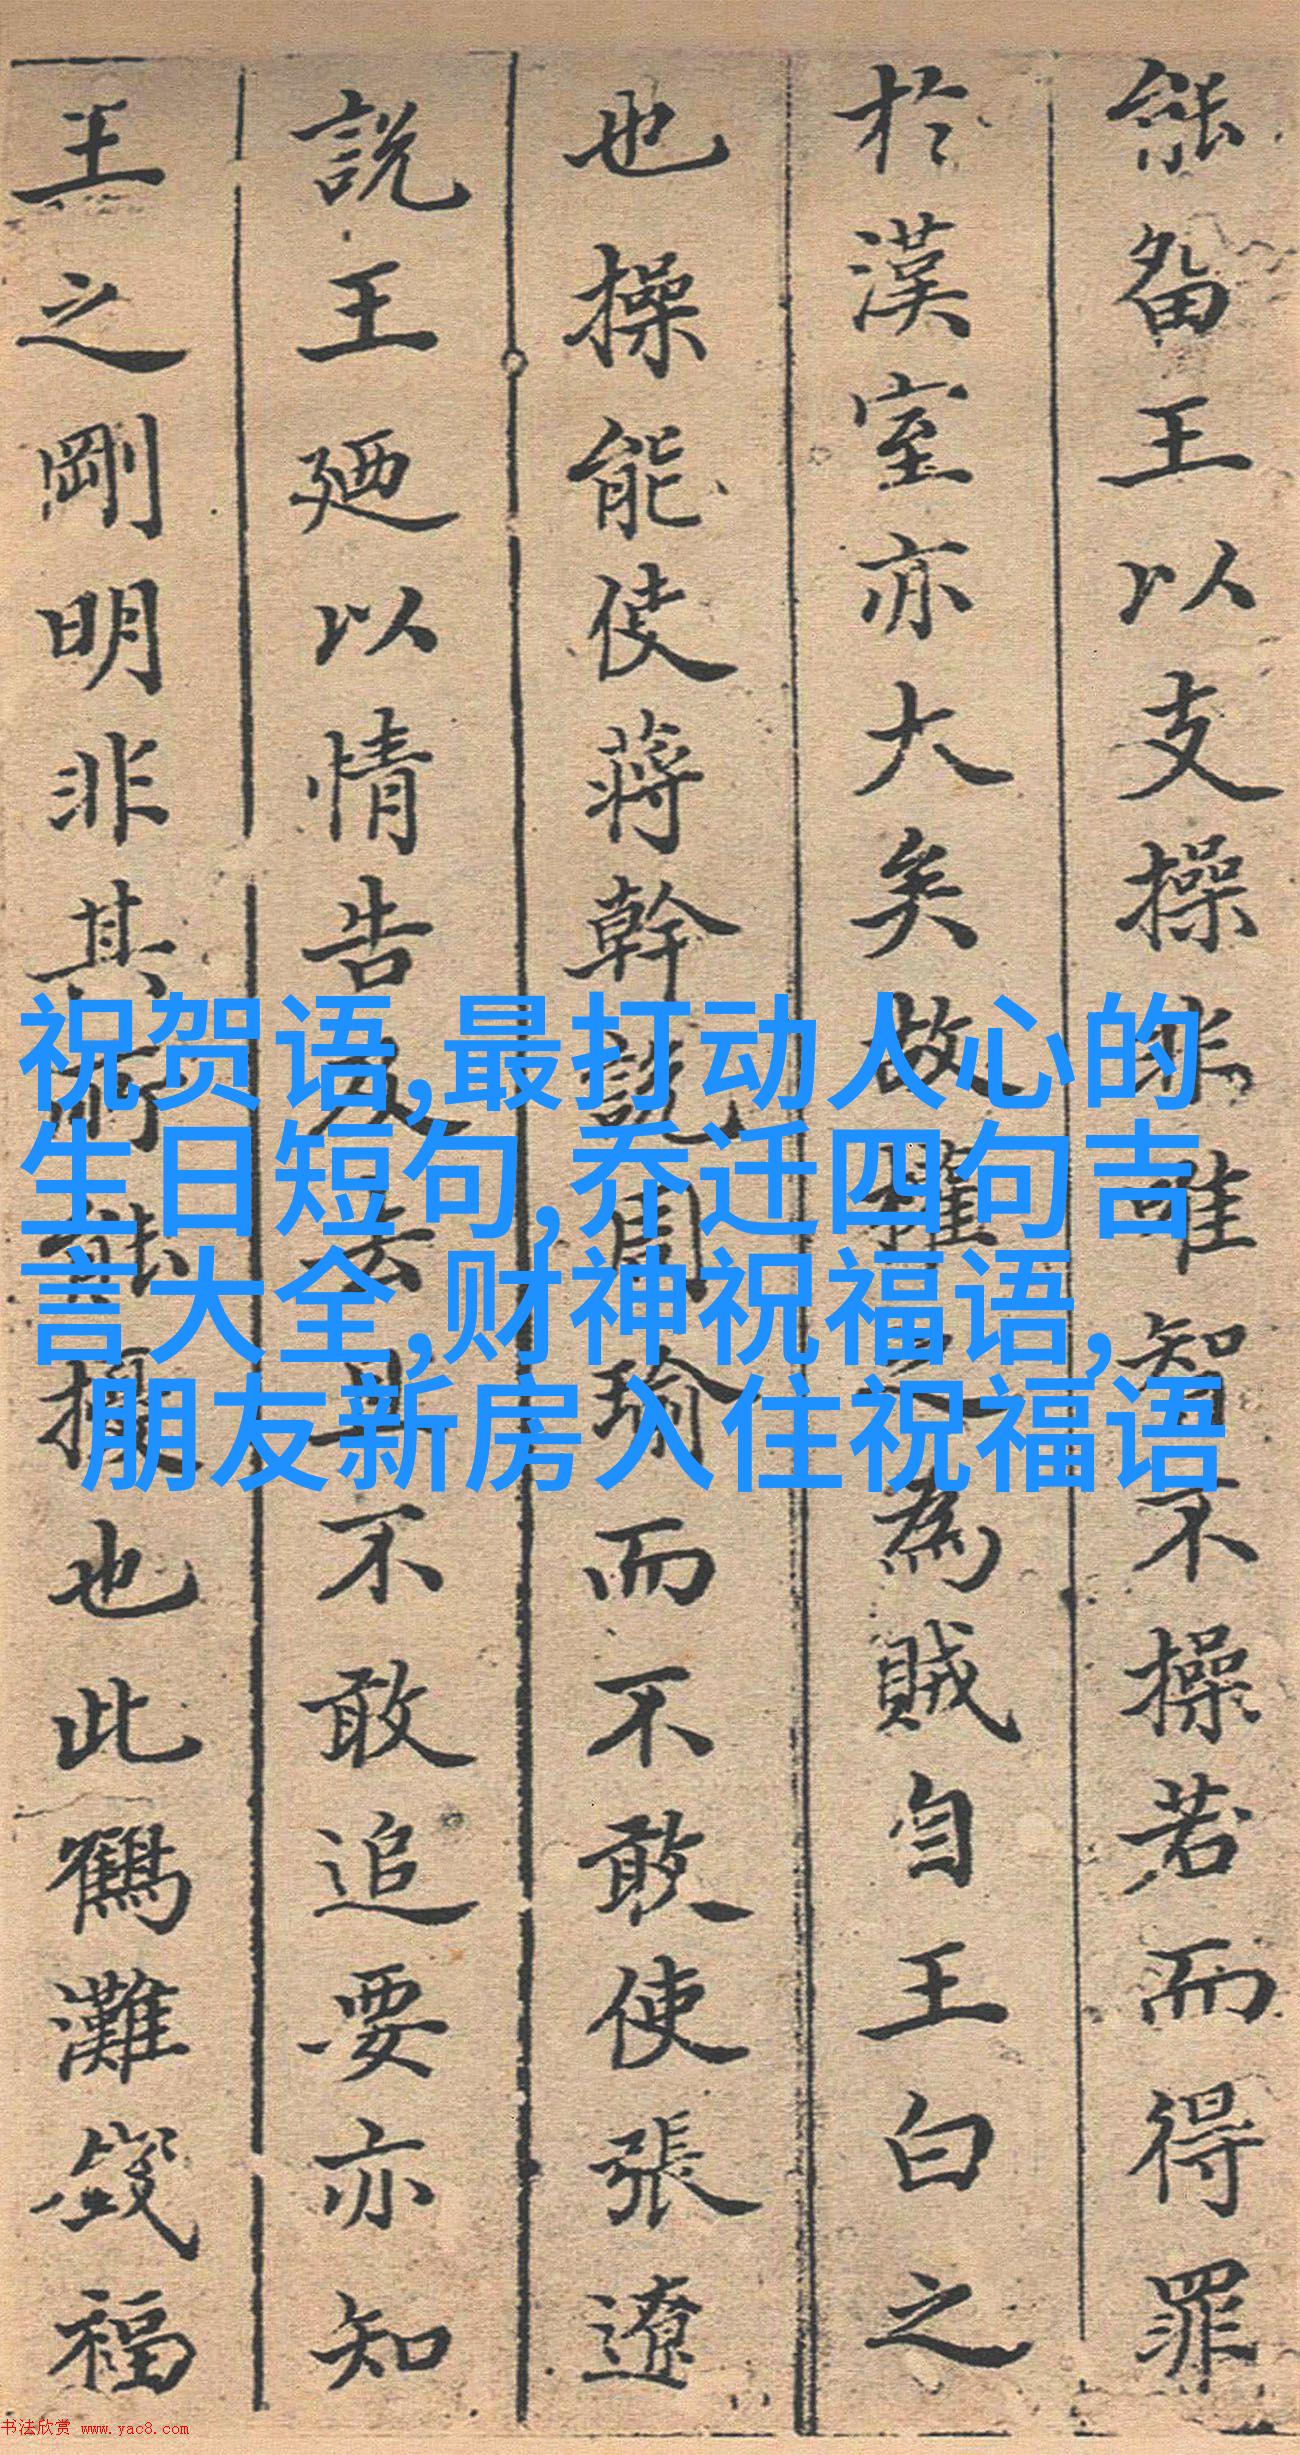 能留王以支操非唯智不操若而得罪
於漢室亦大矣故權之為賊自王白之
也操能使蔣幹說周瑜而不敢使張遼
說王廼以情告友去且不敢追要亦知
王之剛明非其所能擾也此鶴灘發福
祝贺语,最打动人心的
生日短句,乔迁四句吉
言大全,财神祝福语,
朋友新房入住祝福语
书法欣赏 www.yac8.com